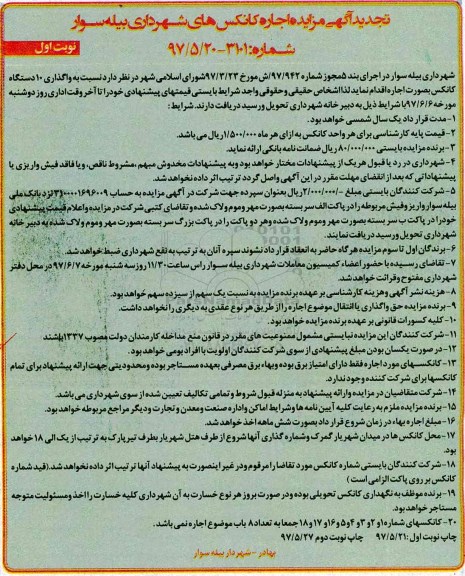 تجدید آگهی مزایده اجاره کانکس های شهرداری بیله سوار
شماره: ۳۱۰۱-۹۷/۵/۲۰
نوبت اول
شهرداری بیله سوار در اجرای بند ۵ مجوز شماره ۹۷/۹۴۲/ش مورخ ۹۷/۳/۲۳ شورای اسلامی شهر در نظر دارد نسبت به واگذاری ۱۰ دستگاه
کانکس بصورت اجاره اقدام نماید لذا اشخاص حقیقی و حقوقی واجد شرایط بایستی قیمتهای پیشنهادی خود را تا آخر وقت اداری روز دوشنبه
مورخه ۹۷/۶/۶ با شرایط ذیل به دبیر خانه شهرداری تحویل و رسید دریافت دارند. شرایط:
۱- مدت قرار داد یک سال شمسی خواهد بود.
۲- قیمت پایه کارشناسی برای هر واحد کانکس به ازای هر ماه ۱/۵۰۰/۰۰۰ ریال می باشد.
۳- برنده مزایده بایستی ۸۰/۰۰۰/۰۰۰ ریال ضمانت نامه بانکی ارائه نماید.
۴- شهرداری در رد یا قبول هر یک از پیشنهادات مختار خواهد بود و به پیشنهادات مخدوش، مبهم، مشروط، ناقص، و یا فاقد فیش واریزی یا
پیشنهاداتی که بعد از انقضای مهلت مقرر در این آگهی واصل گردد ترتیب اثر داده نخواهد شد.
۵- شرکت کنندگان بایستی مبلغ ۲/۰۰۰/۰۰۰- ریال بعنوان سپرده جهت شرکت در آگهی مزایده به حساب ۳۱۰۰۰۰۱۶۹۶۰۰۹ نزد بانک ملی
بیله سوار واریز و فیش مربوطه را در پاکت الف سر بسته بصورت مهر و موم و لاک شده و تقاضای کتبی شرکت در مزایده و اعلام قیمت پیشنهادی
خود را در پاکت ب سر بسته بصورت مهر و موم و لاک شده و هر دو پاکت را در پاکت بزرگ سر بسته بصورت مهر و موم و لاک شده به دبیر خانه
شهرداری تحویل و رسید دریافت نمایند.
۶- برندگان اول تا سوم مزایده هر گاه حاضر به انعقاد قرار داد نشوند سپره آنان به ترتیب به نفع شهرداری ضبط خواهد شد.
۷- تقاضای رسیده با حضور اعضاء کمیسیون معاملات شهرداری بیله سوار راس ساعت ۱۱/۳۰ روز سه شنبه مورخه ۹۷/۶/۷ در محل دفتر
شهرداری مفتوح و قرائت خواهد شد.
۸- هزینه نشر آگهی و هزینه کارشناسی بر عهده برنده مزایده به نسبت یک سهم از سیزده سهم خواهد بود.
۹- برنده مزایده حق واگذاری یا انتقال موضوع اجاره را از طریق هر نوع عقدی به دیگری را نخواهد داشت.
۱۰- کلیه کسورات قانونی بر عهده برنده مزایده خواهد بود.
۱۱- شرکت کنندگان این مزایده نبایستی مشمول ممنوعیت های مقرر در قانون منع مداخله کارمندان دولت مصوب ۱۳۳۷ باشند
۱۲- در صورت یکسان بودن مبلغ پیشنهادی از سوی شرکت کنندگان اولویت با افراد بومی خواهد بود.
۱۳- کانکسهای مورد اجاره فقط دارای امتیاز برق بوده و بهاء برق مصرفی بعهده مستاجر بوده و محدودیتی جهت ارائه پیشنهاد برای تمام
کانکسها برای شرکت کننده وجود ندارد.
۱۴- شرکت متقاضیان در مزایده و ارائه پیشنهاد به منزله قبول شروط و تمامی تکالیف تعیین شده از سوی شهرداری می باشد.
۱۵- برنده مزایده ملزم به رعایت کلیه آیین نامه ها و شرایط اماکن و اداره صنعت و معدن و تجارت و دیگر مراجع مربوطه خواهد بود.
۱۶- مبلغ اجاره بهاء در زمان شروع قرار داد بصورت شش ماهه اخذ خواهد شد.
۱۷- محل کانکس ها در میدان شهریار گمرک و شماره گذاری آنها شروع از طرف هتل شهریار بطرف تیر پارک به ترتیب از یک الی ۱۸ خواهد
بود.
۱۸- شرکت کنندگان بایستی شماره کانکس مورد تقاضا را مرقوم و در غیر اینصورت به پیشنهاد آنها ترتیب اثر داده نخواهد شد. (قید شماره
کانکس بر روی پاکت الزامی است)
۱۹- برنده موظف به نگهداری کانکس تحویلی بوده و در صورت بروز هر نوع خسارت به آن شهرداری کلیه خسارت را اخذ و مسئولیت متوجه
مستاجر خواهد بود.
۲۰- کانکسهای شماره ۱ و ۲ و ۳ و ۴ و ۵ و ۱۶ و ۱۷ و ۱۸ جمعا به تعداد ۸ باب موضوع اجاره نمی باشد.
چاپ نوبت اول: ۹۷/۵/۲۱ چاپ نوبت دوم ۹۷/۵/۲۷
بهادر - شهردار بیله سوار